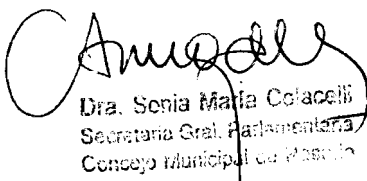 Dra. Sonia María Colacelli
Secretaria Gral. Parlamentaria
Concejo Municipal de Rosario